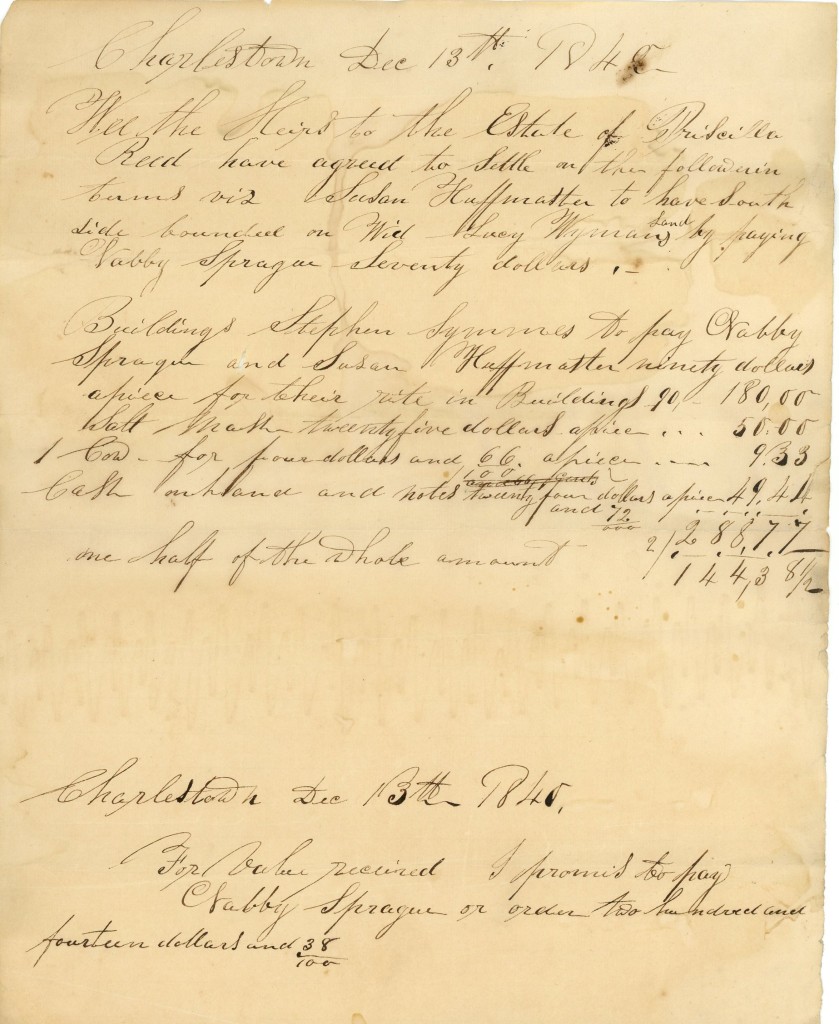 Charlestown Dec 13th. 1840
Wee the Heirs to the Estate of Priscilla
Reed have agreed to settle on the followin
terms viz Susan Huffmaster to have South
side bounded on Wid Lucy Wymans Land by paying
Nabby Sprague Seventy dollars.
Buildings Stephen Symmes to pay Nabby
Sprague and Susan Huffmaster ninety dollars
apiece for their rite in Buildings 90, 180,00
Salt Mash twentyfive dollars apiece ... 50.00
1 Cow for four dollars and 66/100 apiece .... 9.33
Cash onhand and notes twenty four dollars apiece 49,44
and 72/000
one half of the whole amount 2/288,77
144,38 1/2
Charlestown Dec 13th 1840.
For Value received I promis to pay
Nabby Sprague or order two hundred and
fourteen dollars and 38/100